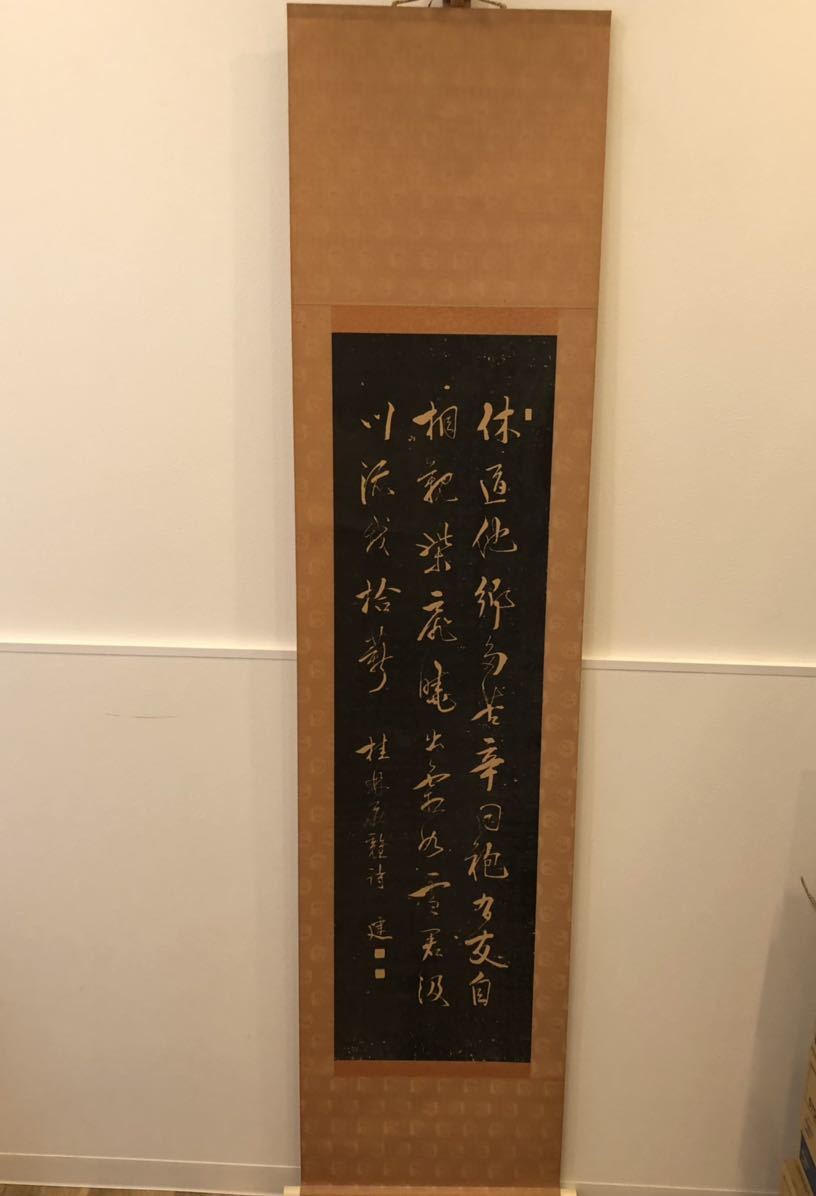 休道他郷多苦辛同袍有友自
相親柴扉暁出霜如雪君汲
川流我拾薪　桂林荘雑詩　建